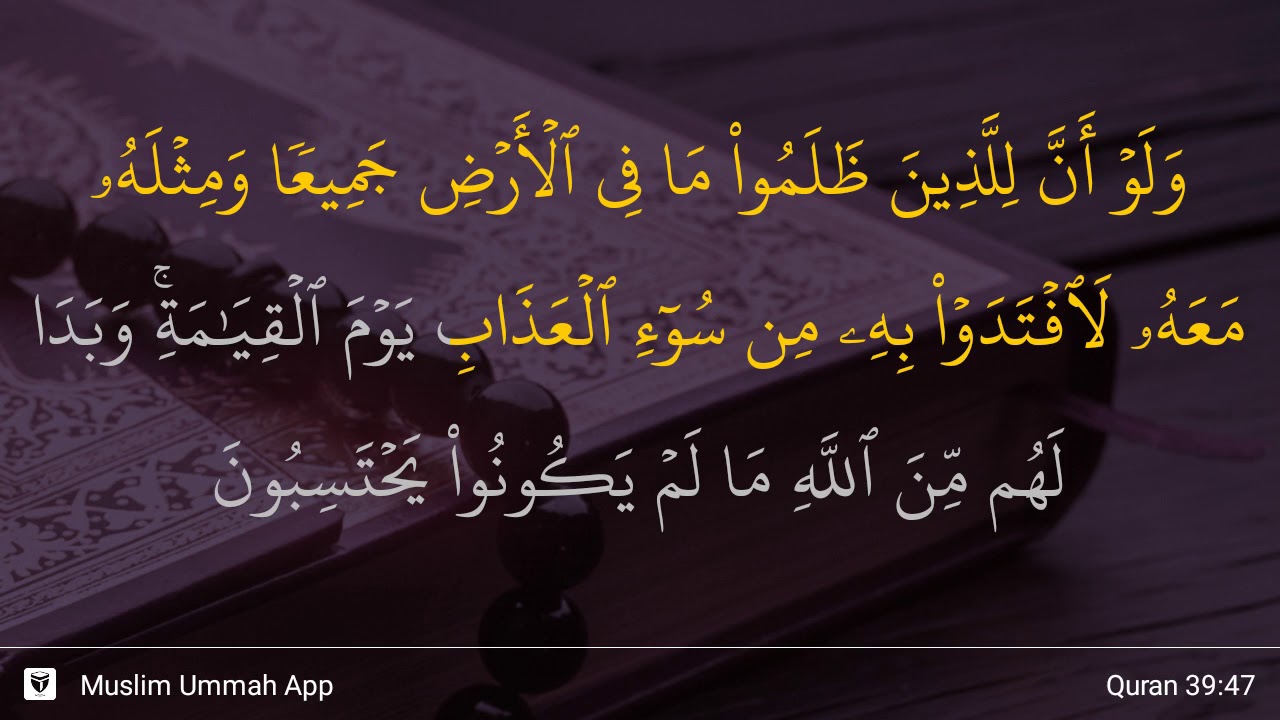 وَلَوۡ أَنَّ لِلَّذِينَ ظَلَمُواْ مَا فِى ٱلۡأَرۡضِ جَمِيعًا وَمِثۡلَهُۥ
مَعَهُۥ لَٱفۡتَدَوۡاْ بِهِۦ مِن سُوٓءِ ٱلۡعَذَابِ يَوۡمَ ٱلۡقِيَـٰمَةِۚ وَبَدَا
لَهُم مِّنَ ٱللَّهِ مَا لَمۡ يَكُونُواْ يَحۡتَسِبُونَ
Muslim Ummah App
Quran 39:47